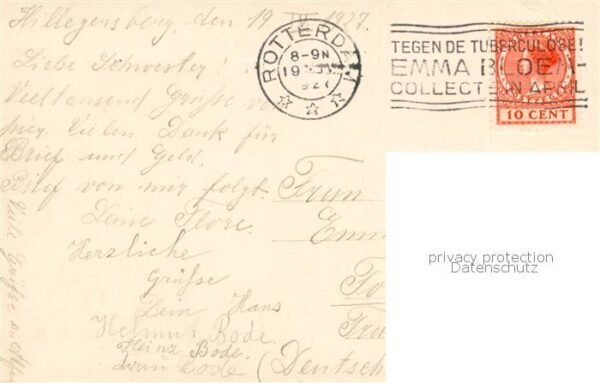 Hillegersberg, den 19 IV. 1927.
Liebe Schwester!
Vieltausend Grüsse von
hier. Vielen Dank für
Brief und Geld.
Brief von mir folgt.
Deine Flore.
Herzliche
Grüsse
Dein Hans
Helmut Bode.
Heinz Bode.
Bode
Viele Grüsse an
ROTTERDAM
8-9N
19
1927
TEGEN DE TUBERCULOSE!
EMMA BLOEM-
COLLECTE IN APRIL
10 CENT
Frau
Emm
(Deutsch
privacy protection
Datenschutz